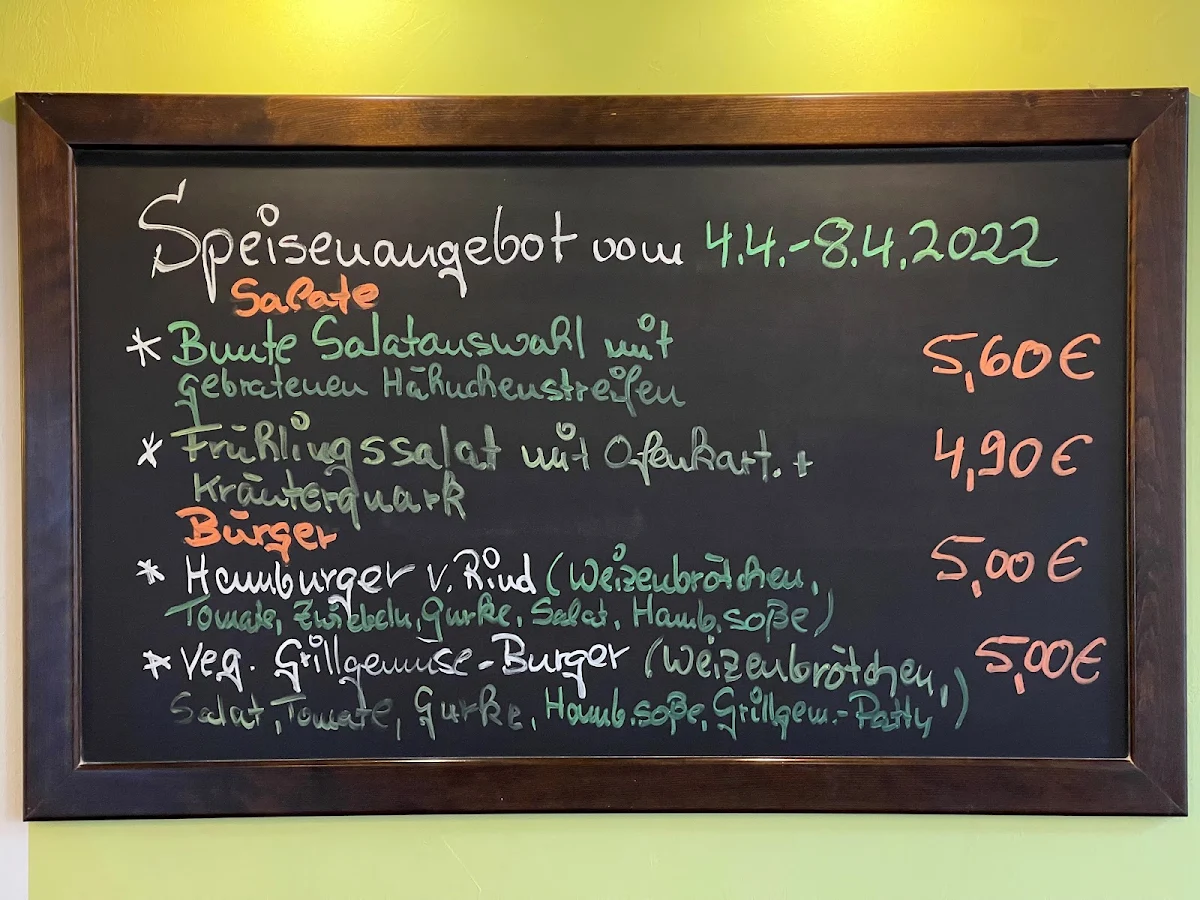 Speisenangebot vom 4.4.-8.4.2022
Salate
* Bunte Salatauswahl mit
gebratenen Hähnchenstreifen 5,60€
* Frühlingssalat mit Ofenkart. + 4,90€
Kräuterquark
Burger
* Hamburger v. Rind (Weizenbrötchen, 5,00€
Tomate, Zwiebeln, Gurke, Salat, Hamb.soße)
* veg. Grillgemüse-Burger (Weizenbrötchen, 5,00€
Salat, Tomate, Gurke, Hamb.soße, Grillgem.-Patty)